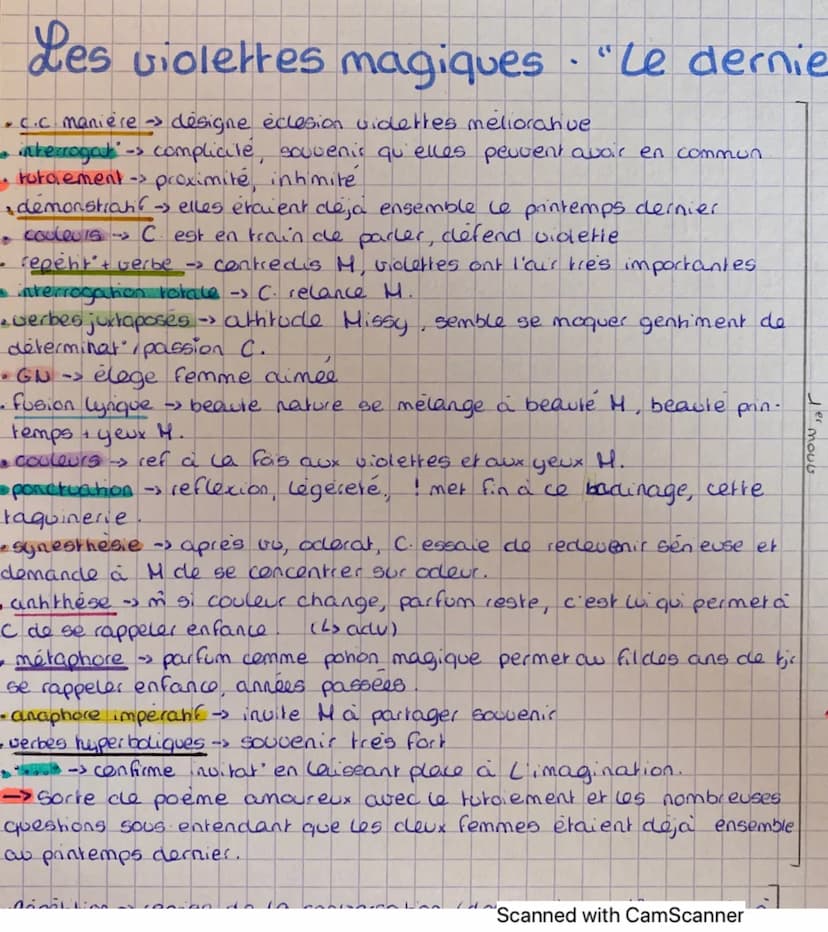 Les violettes magiques. "Le dernie
• c.c. manière -> désigne éclosion violettes méliorative
• interrogat° -> complicité, souvenir qu'elles peuvent avoir en commun
• tutoiement -> proximité, intimité
• démonstratif -> elles étaient déjà ensemble le printemps dernier
• couleurs -> C. est en train de parler, défend violette
• répétit° + verbe -> contredis M, violettes ont l'air très importantes
• interrogation totale -> C. relance M.
• verbes juxtaposés -> attitude Missy, semble se moquer gentiment de
déterminat°, passion C.
• GN -> éloge femme aimée
• fusion lyrique -> beauté nature se mélange à beauté M, beauté prin-
temps + yeux M.
• couleurs -> ref à la fois aux violettes et aux yeux M.
• ponctuation -> reflexion, légèreté, ! met fin à ce badinage, cette
taquinerie.
• synesthésie -> après vu, odorat, C. essaie de redevenir sérieuse et
demande à M de se concentrer sur odeur.
• antithèse -> m̂ si couleur change, parfum reste, c'est lui qui permet à
C de se rappeler enfance. (↳ adv)
• métaphore -> parfum comme potion magique permet au fil des ans de tjr
se rappeler enfance, années passées.
• anaphore impératif -> invite M à partager souvenir
• verbes hyperboliques -> souvenir très fort
• "....." -> confirme invitat° en laissant place à l'imagination.
-> Sorte de poème amoureux avec le tutoiement et les nombreuses
questions sous-entendant que les deux femmes étaient déjà ensemble
au printemps dernier.
1er mouv
Scanned with CamScanner